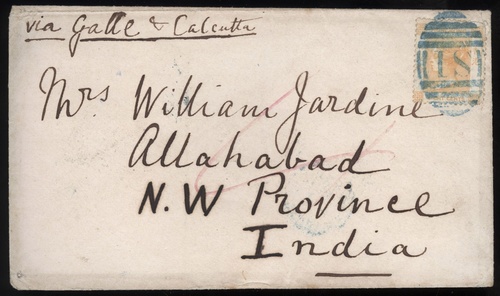 via Galle & Calcutta
18
Mrs William Jardine
Allahabad
N.W Province
India